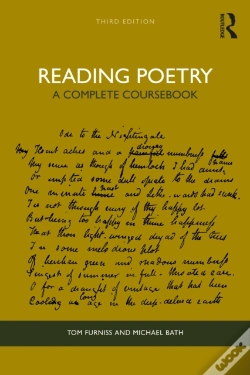 THIRD EDITION
ROUTLEDGE
READING POETRY
A COMPLETE COURSEBOOK
Ode to the Nightingale
drowsy
My Heart aches and a numbness
My sense as though of hemlock I had
Or emptied some dull opiate to the drains
past
One minute and Lethe-wards had sunk.
Tis not through envy of thy happy lot
But being too happy in thine happiness
That thou light-winged dryad of the trees
In some melodious plot
Of beechen green and shadows numberless
Singest of summer in full-throated ease.
O for a draught of vintage that has been
Cooling an age in the deep-delved earth
TOM FURNISS AND MICHAEL BATH
wook